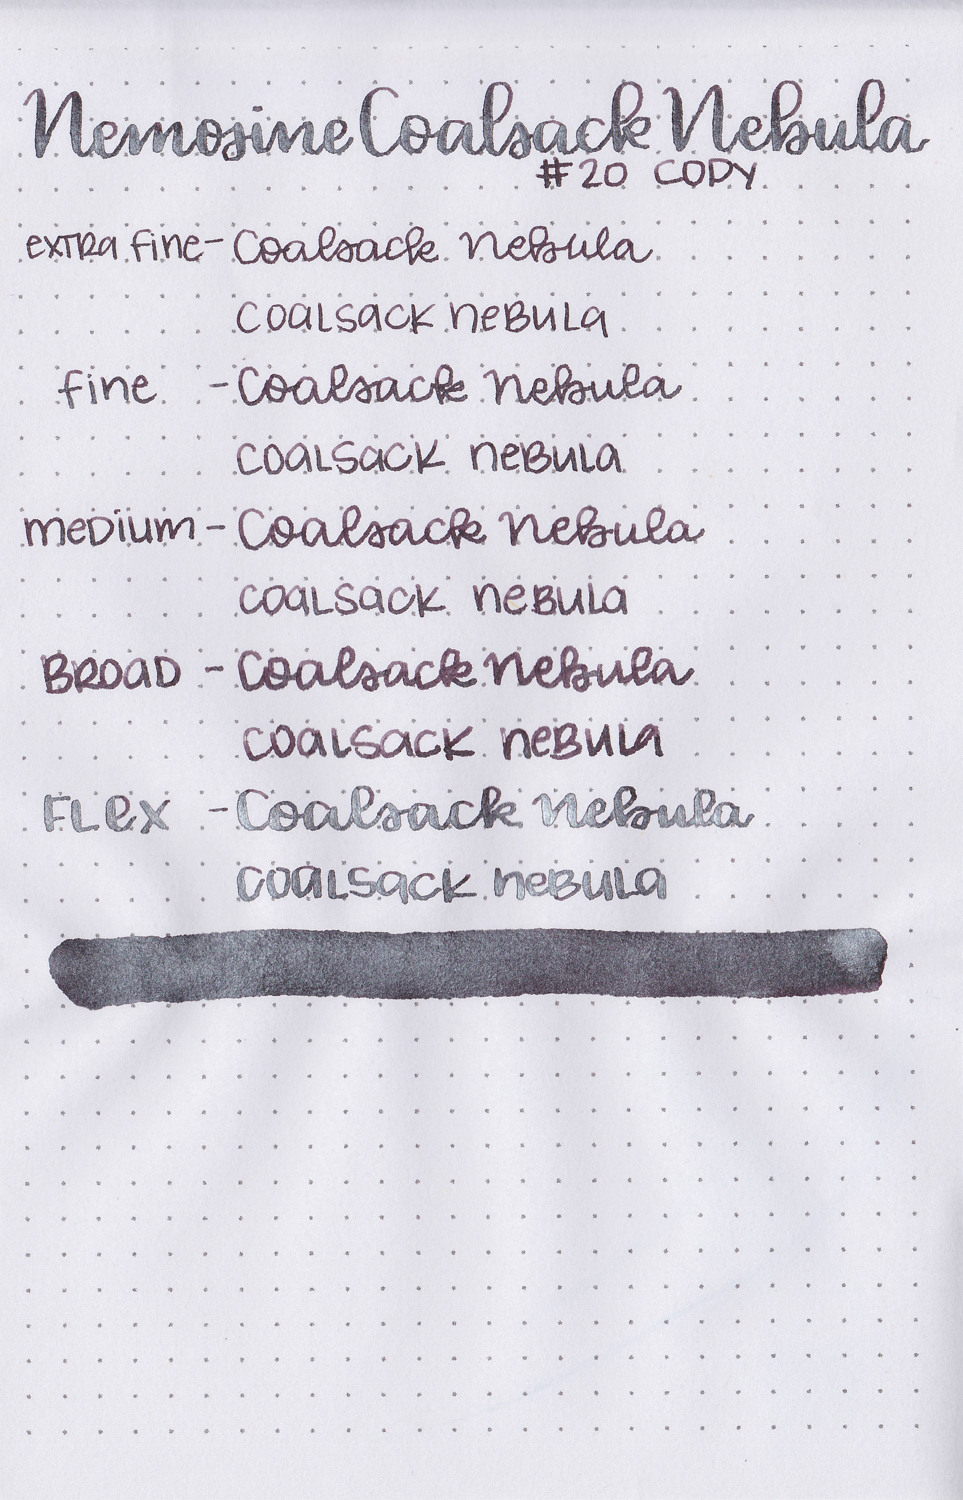 Nemosine Coalsack Nebula
#20 COPY
extra fine - Coalsack Nebula
Coalsack Nebula
fine - Coalsack Nebula
Coalsack Nebula
medium - Coalsack Nebula
Coalsack Nebula
BROAD - Coalsack Nebula
Coalsack Nebula
FLex - Coalsack Nebula
Coalsack Nebula